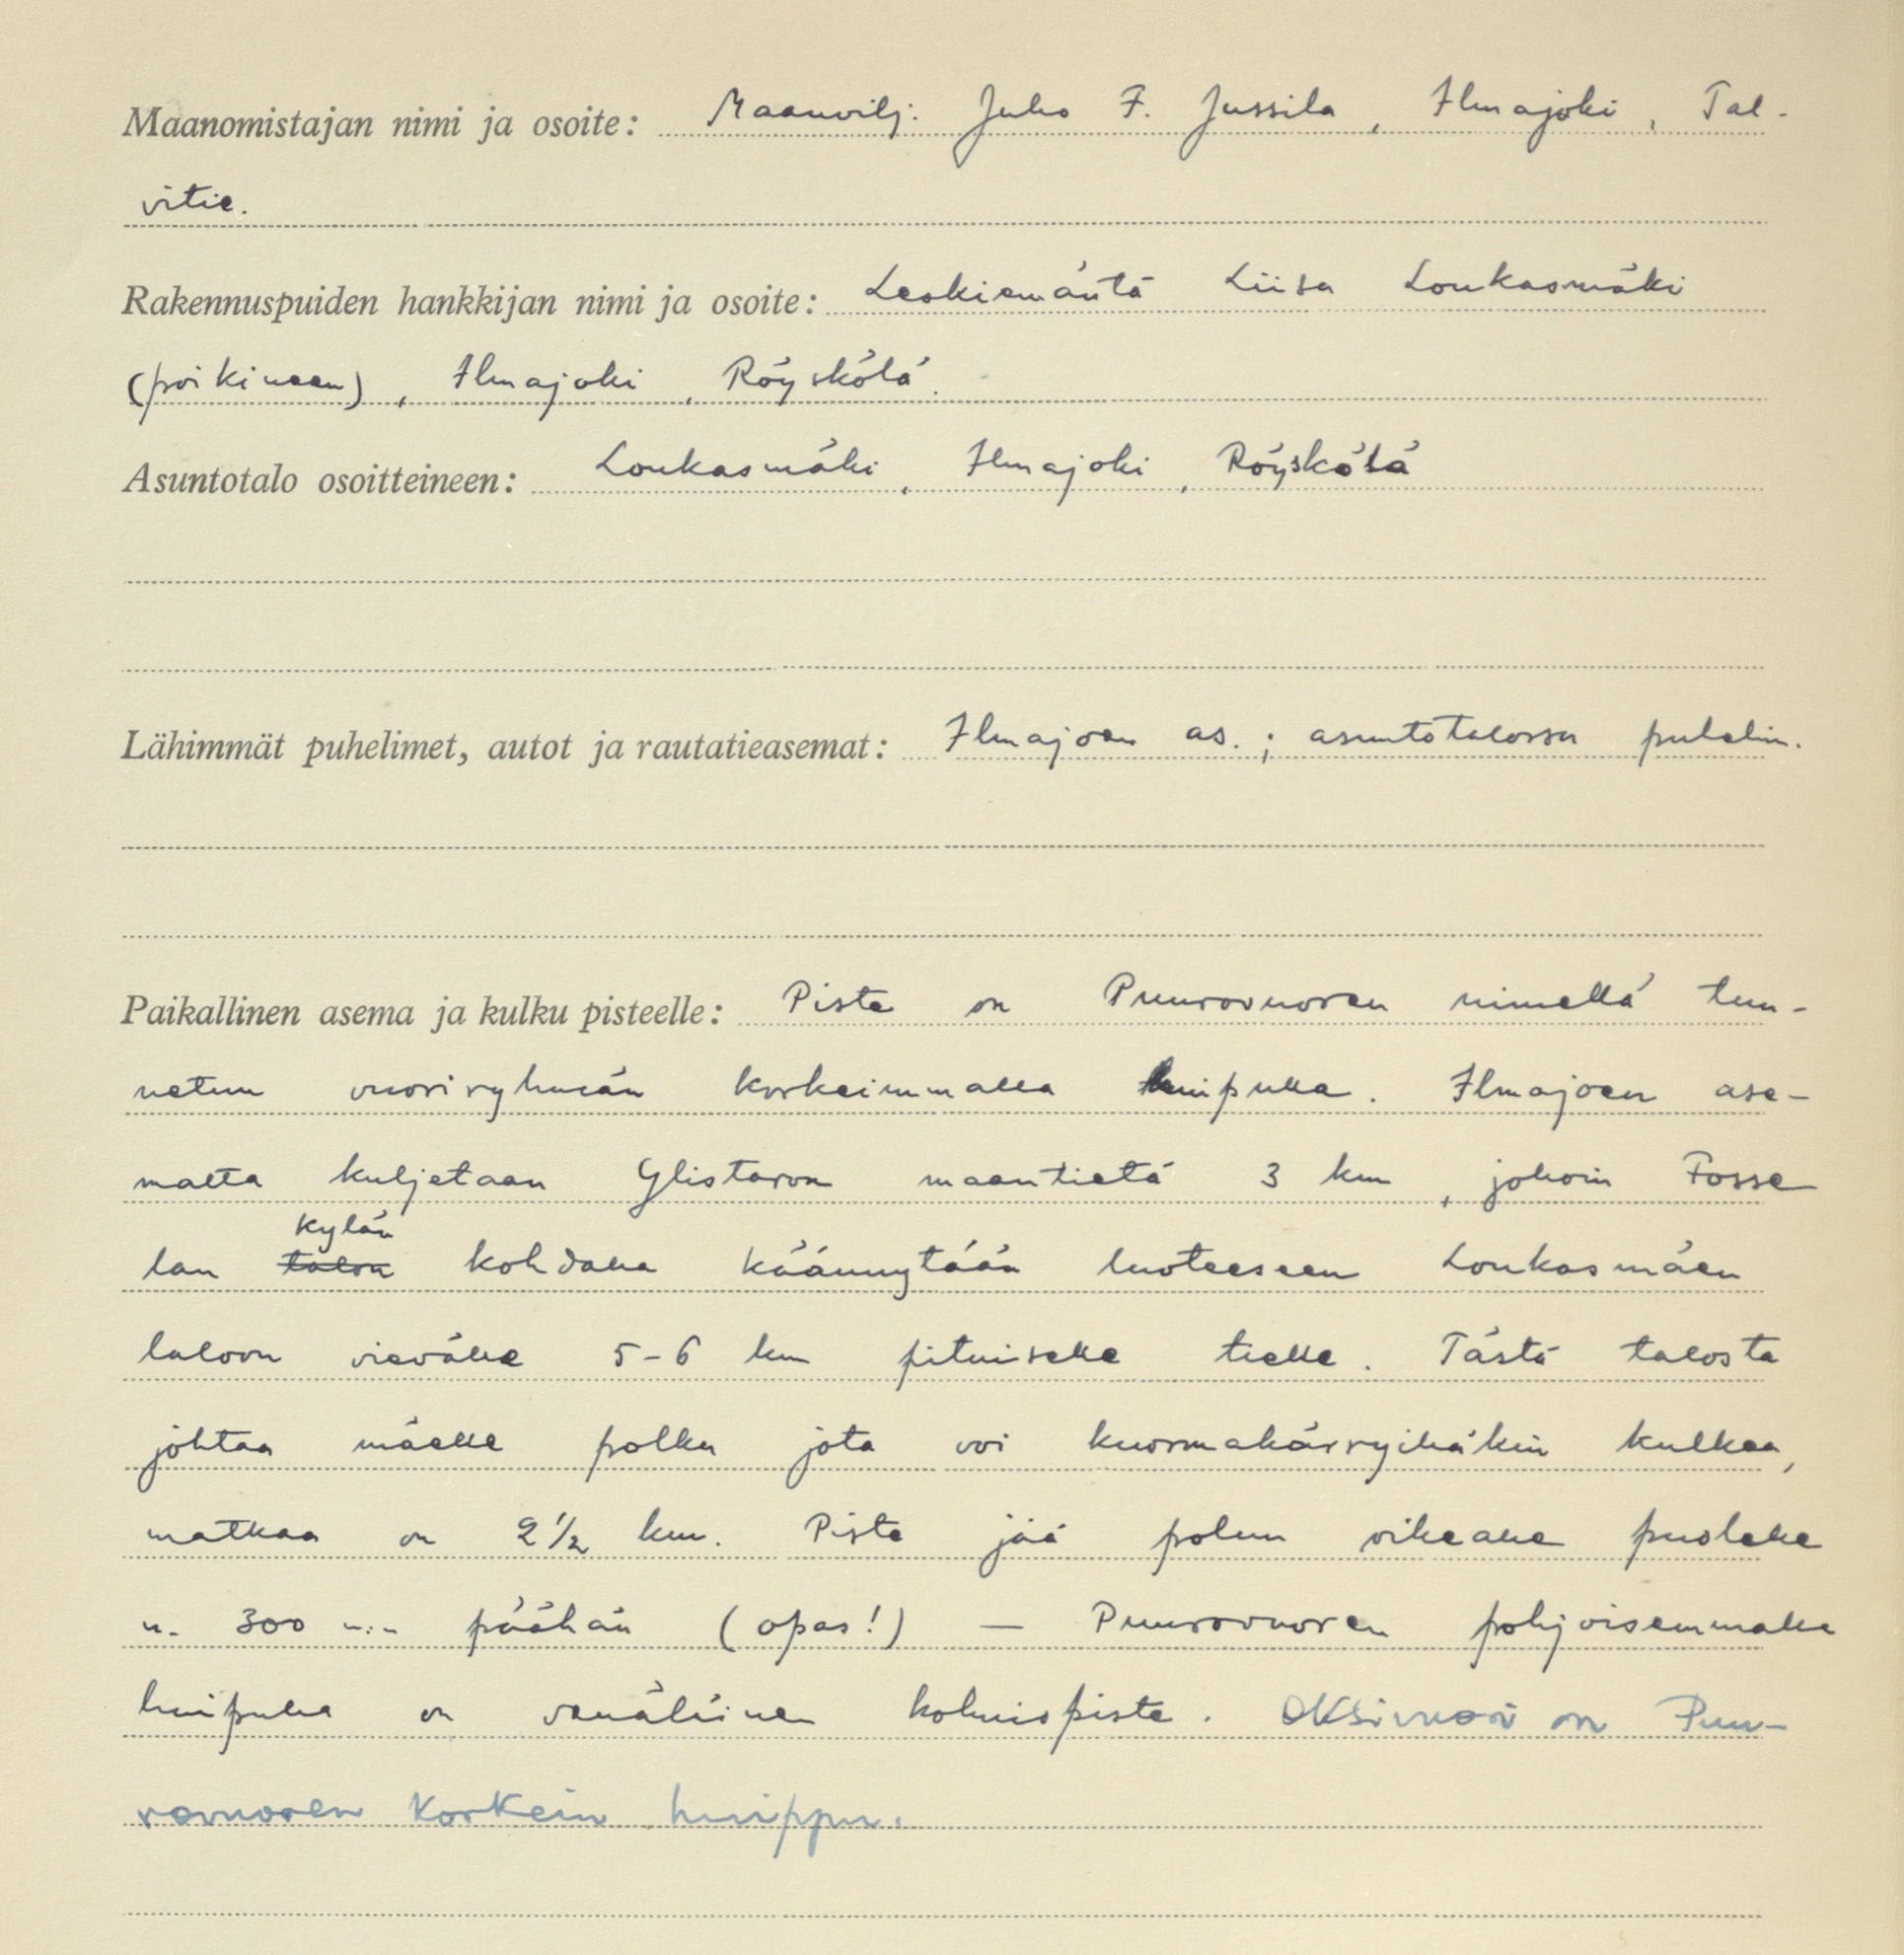 Maanomistajan nimi ja osoite: Maanvilj. Juho F. Jussila, Ilmajoki, Tal-
vitie.
Rakennuspuiden hankkijan nimi ja osoite: Leskiemäntä Liisa Loukasmäki
(poikineen), Ilmajoki, Röyskölä.
Asuntotalo osoitteineen: Loukasmäki, Ilmajoki, Röyskölä
Lähimmät puhelimet, autot ja rautatieasemat: Ilmajoen as.; asuntotalossa puhelin.
Paikallinen asema ja kulku pisteelle: Piste on Puurovuoren nimellä tun-
netun vuoriryhmän korkeimmalla huipulla. Ilmajoen ase-
malta kuljetaan Ylistaron maantietä 3 km, jolloin Fosse
kylän
lan talon kohdalla käännytään luoteeseen Loukasmäen
taloon vievälle 5-6 km pituiselle tielle. Tästä talosta
johtaa mäelle polku jota voi kuormakärryilläkin kulkea,
matkaa on 2½ km. Piste jää polun oikealle puolelle
n. 300 m:n päähän (opas!) — Puurovuoren pohjoisemmalla
huipulla on venäläinen kolmiopiste. Oksivuori on Puu-
rovuoren korkein huippu.